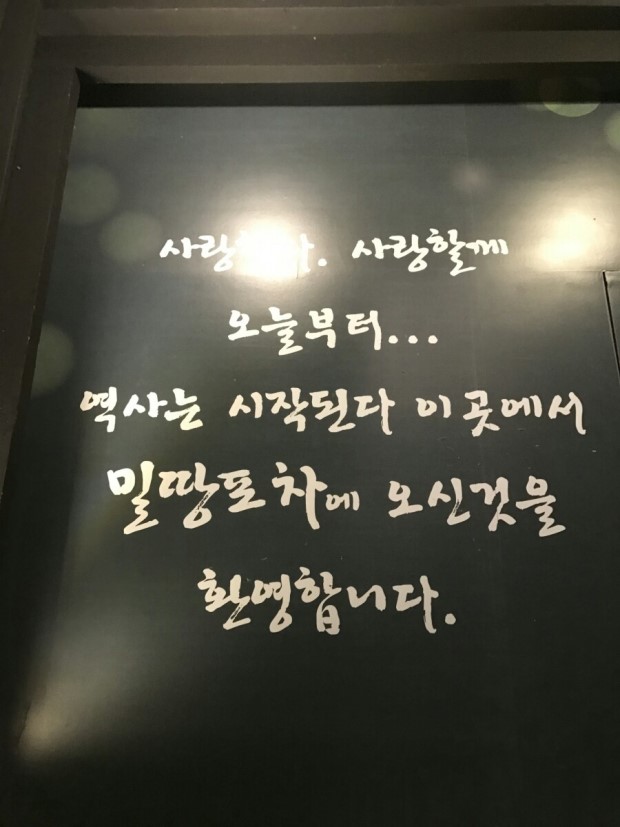 사랑할께
오늘부터...
역사는 시작된다 이곳에서
밀땅포차에 오신것을
환영합니다.